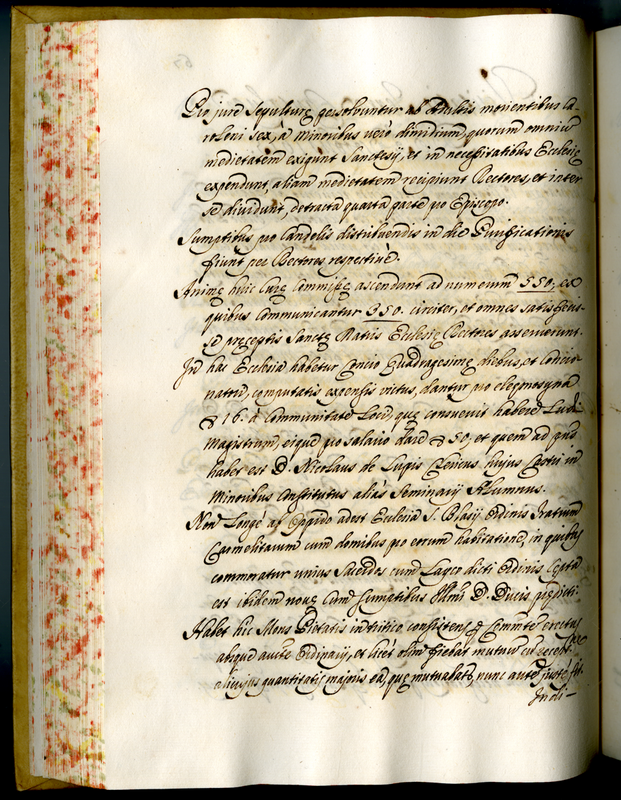 Pro jure Sepulturę persolvuntur ab Adultis morientibus Ca-
roleni sex, à Minoribus verò dimidium, quorum omnium
medietatem exigunt Sanctesij, et in necessitatibus Ecclesię
expendunt, aliam medietatem recipiunt Rectores, et inter
se dividunt, detracta quarta parte pro Episcopo.
Sumptibus pro Candelis distribuendis in die Purificationis
fiunt per Rectores respectivè.
Animę huic Curę Commissę ascendunt ad numerum 550, ex
quibus Communicantur 350. circiter, et omnes satisfecis-
se pręceptis Sanctę Matris Ecclesię Rectores asseruerunt.
In hac Ecclesia habetur Concio Quadragesimę diebus, et Concio-
natori, computatis expensis victus, dantur pro elęemosyna
16. à Communitate Loci, quę consuevit habere Ludi
Magistrum, eique pro salario dare 50, et quem ad pńs
habet est D. Nicolaus de Lupis Clericus hujus Castri in
Minoribus Constitutus aliàs Seminarij Alumnus.
Non Longè ab Oppido adest Ecclesia S. Blasij Ordinis Fratrum
Carmelitarum cum domibus pro eorum habitatione, in quibus
commoratur unius Sacerdos cum Layco dicti Ordinis Cępta
est ibidem nova Cum sumptibus Illmi D. Ducis prędicti.
Habet hic Mons Pietatis in tritico consistens Commte erectus
absque aucte Ordinarij, et licèt olim fiebat mutuum cum recept.ne
alicujus quantitatis majoris ea, quę mutuabatr, nunc autem justè fit.
Indi-